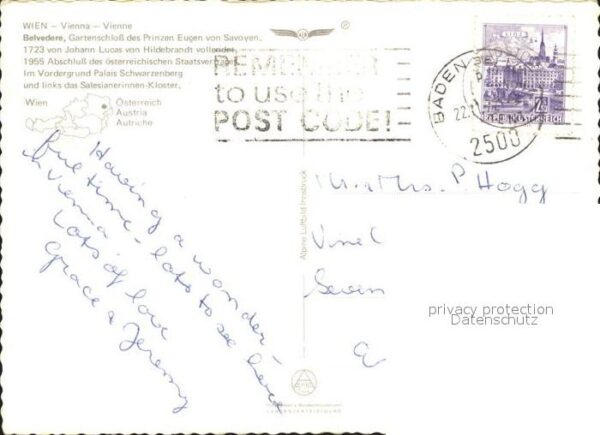 WIEN – Vienna – Vienne
Belvedere, Gartenschloß des Prinzen Eugen von Savoyen.
1723 von Johann Lucas von Hildebrandt vollendet.
1955 Abschluß des österreichischen Staatsvertages.
Im Vordergrund Palais Schwarzenberg
und links das Salesianerinnen-Kloster.
Wien
Österreich
Austria
Autriche
REMEMBER
to use the
POST CODE!
BADEN BEI
22.
2500
LINZ
REPUBLIK ÖSTERREICH
Having a wonder-
ful time - lots to see here
in Vienna
Lots of love
Grace & Jeremy
Alpine Luftbild Innsbruck
Mr. & Mrs. P Hogg
Vinel
Seven
privacy protection
Datenschutz